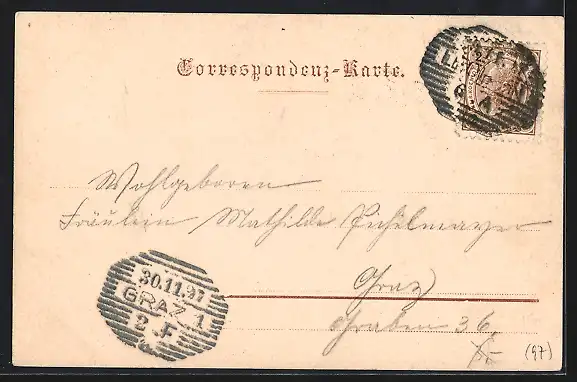 Correspondenz-Karte.
Wohlgeboren
Fräulein Mathilde Pichelmayer
Graz
Graben 36
30.11.97
GRAZ 1
2 F
(97)